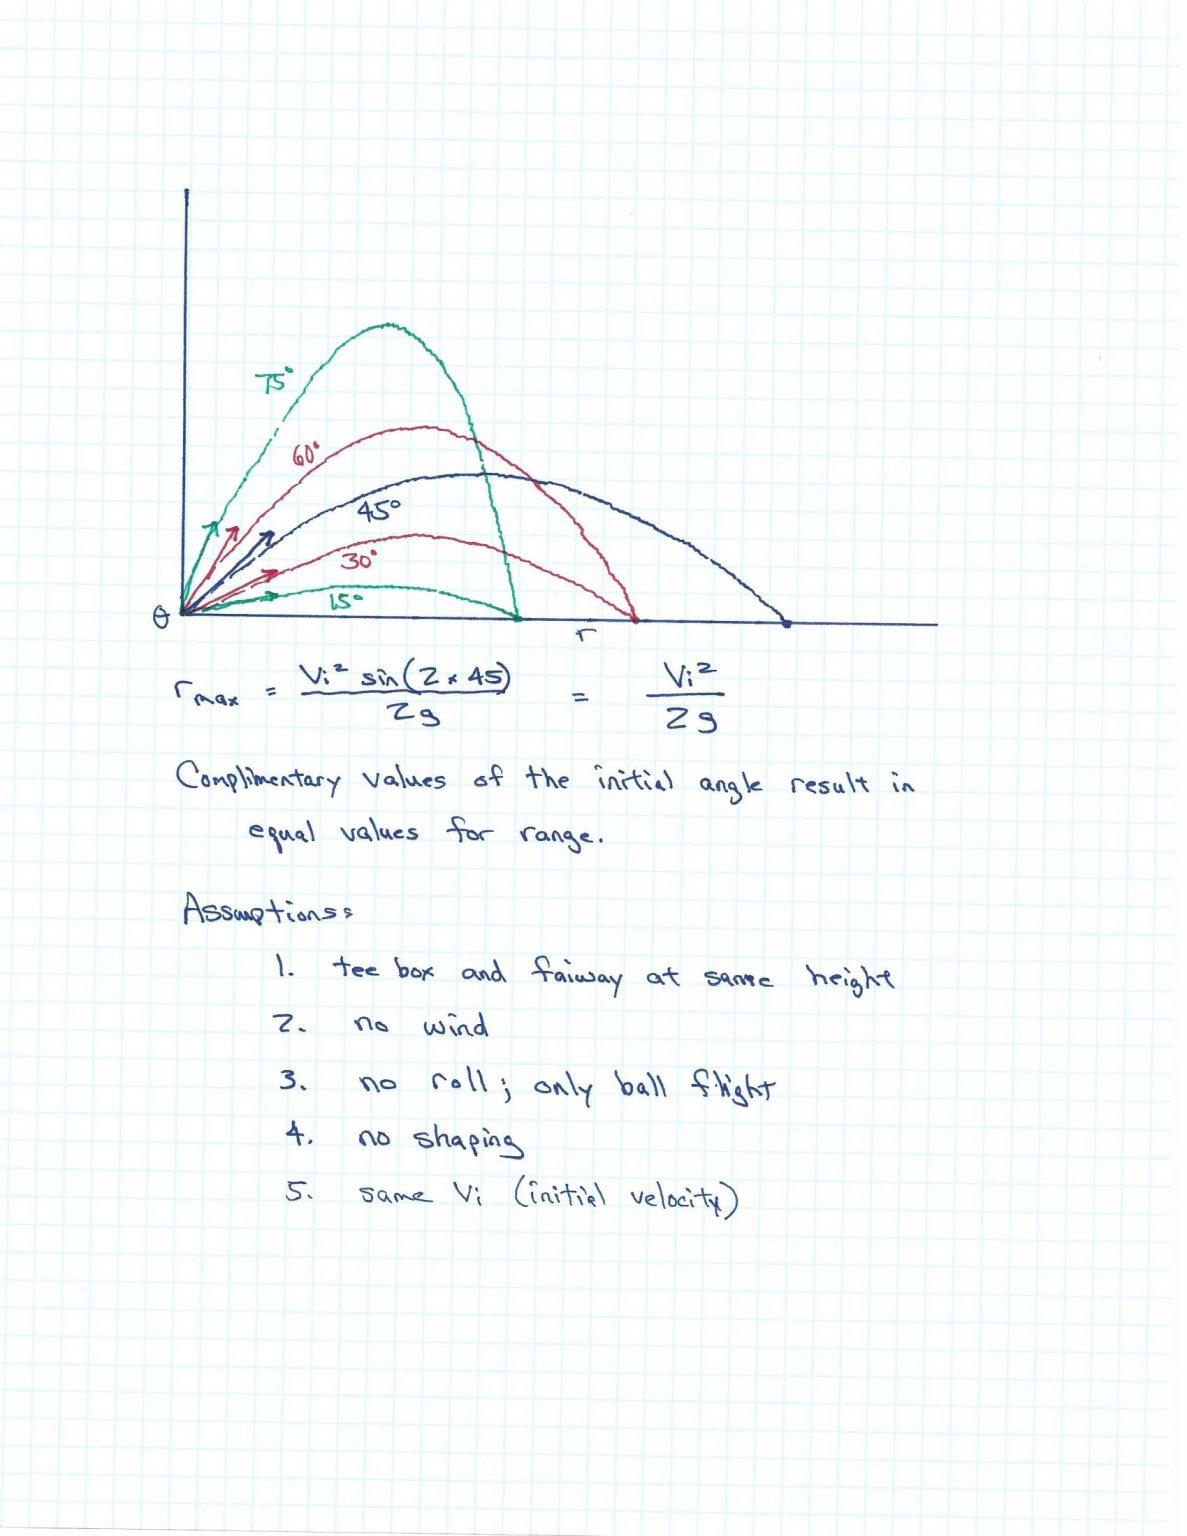 75°
60°
45°
30°
15°
θ
r
rmax = Vi² sin(2 × 45) / 2g = Vi² / 2g
Complimentary values of the initial angle result in
equal values for range.
Assumptions:
1. tee box and faiway at same height
2. no wind
3. no roll; only ball flight
4. no shaping
5. same Vi (initial velocity)